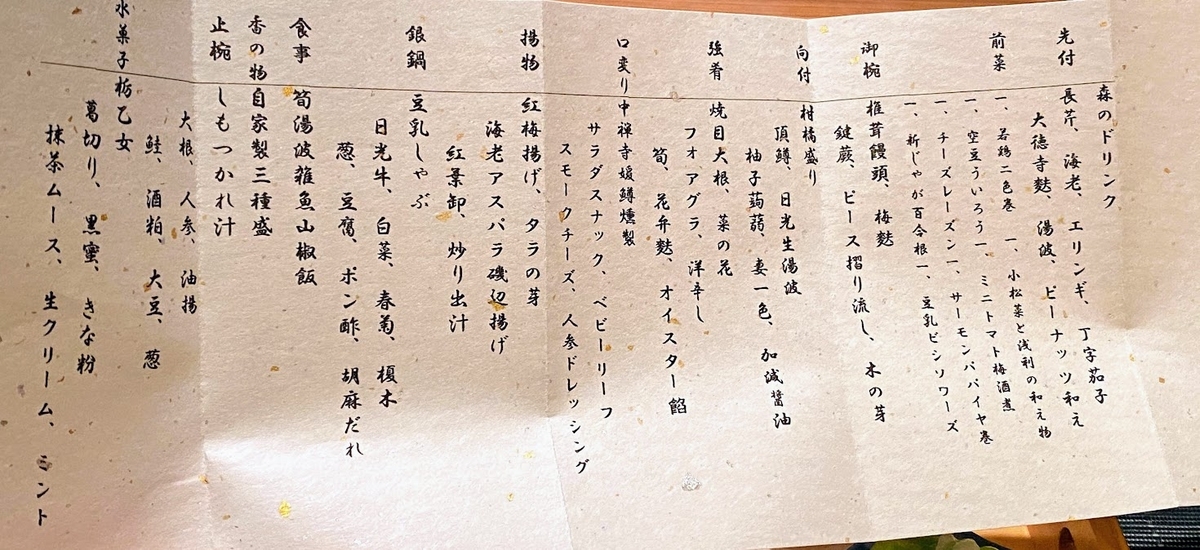 森のドリンク
先付 長芹、海老、エリンギ、丁字茄子
大徳寺麩、湯波、ピーナッツ和え
前菜 一、若鶏二色巻 一、小松菜と浅利の和え物
一、空豆ういろう 一、ミニトマト梅酒煮
一、チーズレーズン 一、サーモンパパイヤ巻
一、新じゃが百合根 一、豆乳ビシソワーズ
御椀 椎茸饅頭、梅麩
鍵蕨、ピース摺り流し、木の芽
向付 柑橘盛り
頂鱒、日光生湯波
柚子蒟蒻、妻一色、加減醤油
強肴 焼目大根、菜の花
フォアグラ、洋辛し
筍、花弁麩、オイスター餡
口変り 中禅寺媛鱒燻製
サラダスナック、ベビーリーフ
スモークチーズ、人参ドレッシング
揚物 紅梅揚げ、タラの芽
海老アスパラ磯辺揚げ
紅葉卸、炒り出汁
銀鍋 豆乳しゃぶ
日光牛、白菜、春菊、榎木
葱、豆腐、ポン酢、胡麻だれ
食事 筍湯波雑魚山椒飯
香の物 自家製三種盛
止椀 しもつかれ汁
大根、人参、油揚
鮭、酒粕、大豆、葱
水菓子 栃乙女
葛切り、黒蜜、きな粉
抹茶ムース、生クリーム、ミント